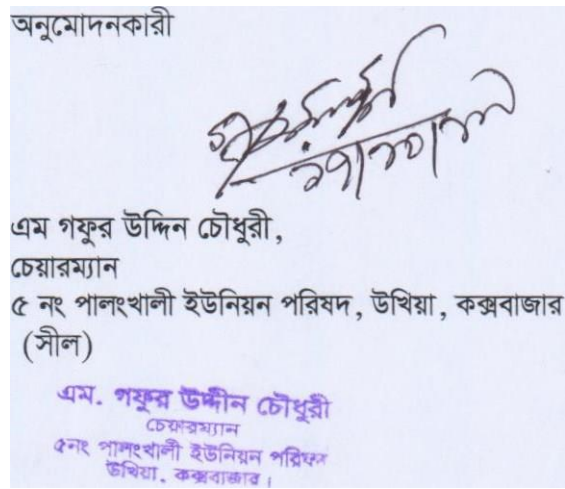 অনুমোদনকারী
এম গফুর উদ্দিন চৌধুরী,
চেয়ারম্যান
৫ নং পালংখালী ইউনিয়ন পরিষদ, উখিয়া, কক্সবাজার
(সীল)
এম. গফুর উদ্দীন চৌধুরী
চেয়ারম্যান
৫নং পালংখালী ইউনিয়ন পরিষদ
উখিয়া, কক্সবাজার।